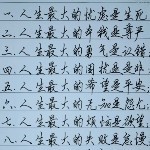 一.人生最大的忧虑是生死
二.人生最大的本我是尊严
三.人生最大的勇气是认错
四.人生最大的困扰是是非
五.人生最大的希望是平安
六.人生最大的无知是怨尤
七.人生最大的烦恼是欲望
八.人生最大的失败是怠慢